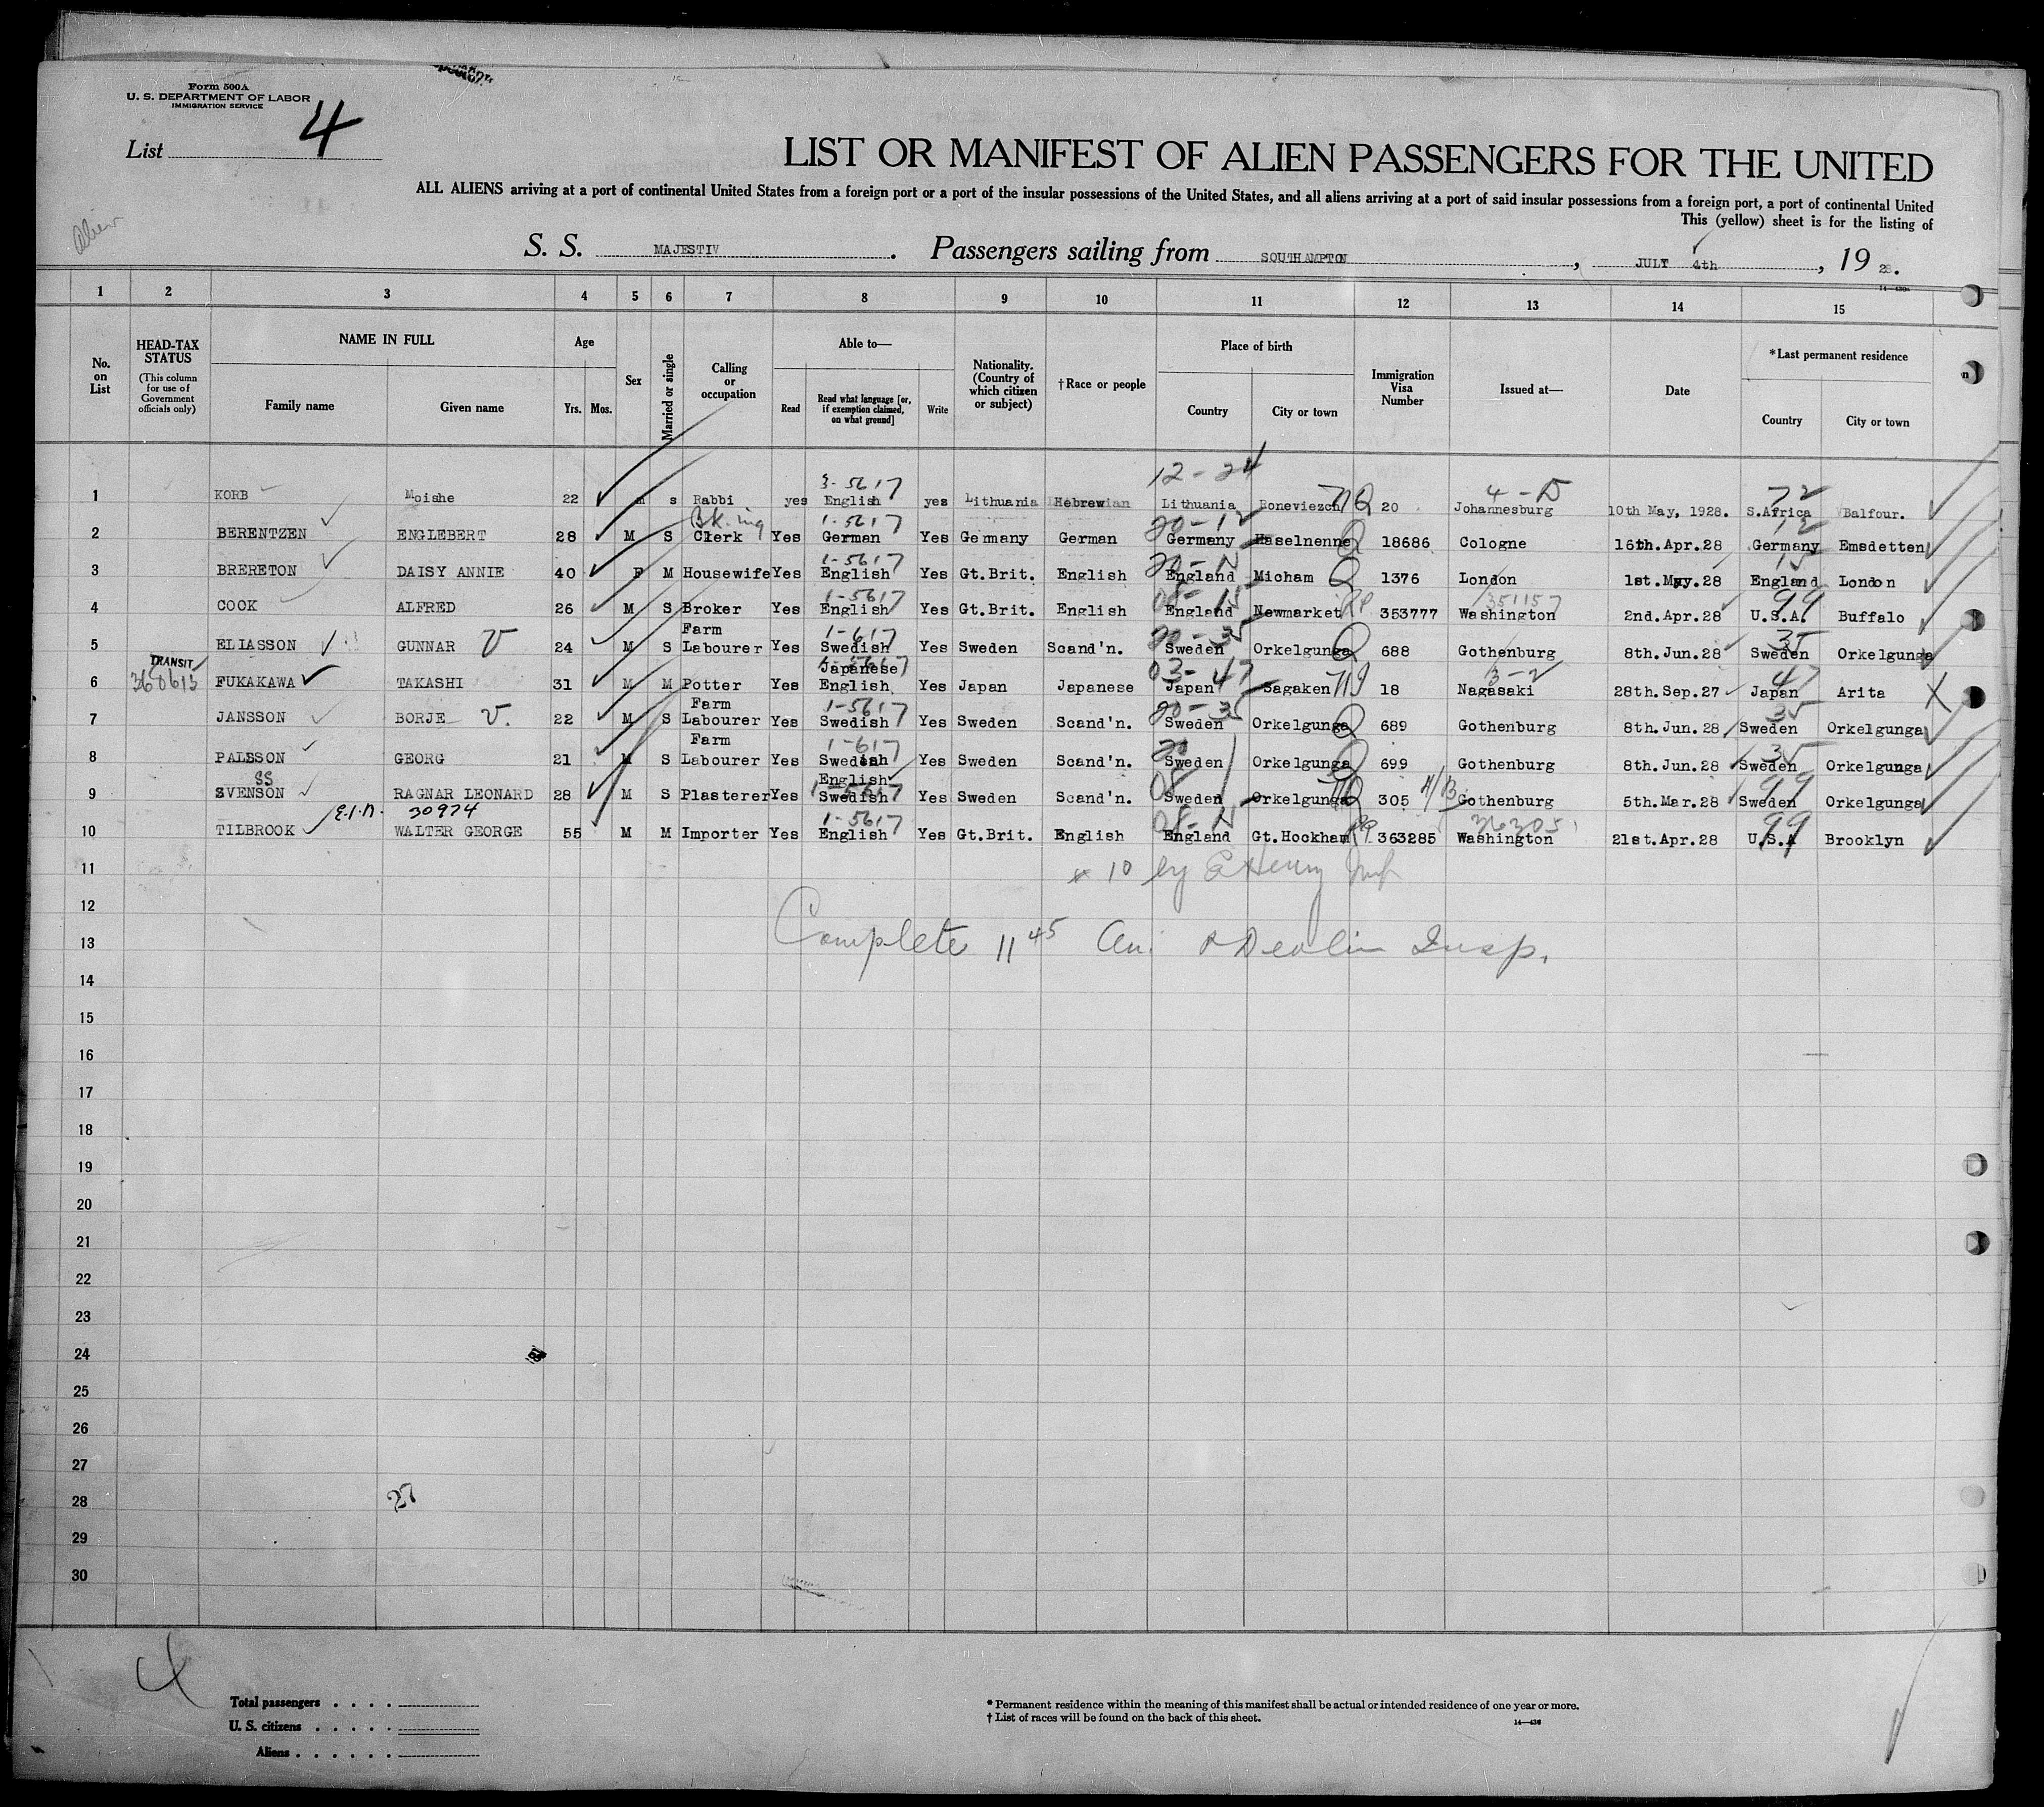 Form 500A
U. S. DEPARTMENT OF LABOR
IMMIGRATION SERVICE
List 4
LIST OR MANIFEST OF ALIEN PASSENGERS FOR THE UNITED
ALL ALIENS arriving at a port of continental United States from a foreign port or a port of the insular possessions of the United States, and all aliens arriving at a port of said insular possessions from a foreign port, a port of continental United
This (yellow) sheet is for the listing of
Alien
S. S. MAJESTIV . Passengers sailing from SOUTHAMPTON , JULY 4th , 19 28.
1 2 3 4 5 6 7 8 9 10 11 12 13 14 15
No. on List
HEAD-TAX STATUS
(This column for use of Government officials only)
NAME IN FULL
Family name Given name
Age
Yrs. Mos.
Sex
Married or single
Calling or occupation
Able to—
Read
Read what language [or, if exemption claimed, on what ground]
Write
Nationality. (Country of which citizen or subject)
†Race or people
Place of birth
Country City or town
Immigration Visa Number
Issued at—
Date
*Last permanent residence
Country City or town
12-24
3-5617 4-D 72
1 KORB Moishe 22 M s Rabbi yes English yes Lithuania Hebrew Lithuania Boneviezch Q 20 Johannesburg 10th May, 1928. S.Africa Balfour.
Bk.ing 1-5617 20-12 12
2 BERENTZEN ENGLEBERT 28 M S Clerk Yes German Yes Germany German Germany Haselnenne Q 18686 Cologne 16th.Apr.28 Germany Emsdetten
1-5617 15
3 BRERETON DAISY ANNIE 40 F M Housewife Yes English Yes Gt.Brit. English England Micham Q 1376 London 1st.May.28 England London
1-5617 351157 99
4 COOK ALFRED 26 M S Broker Yes English Yes Gt.Brit. English England Newmarket RP 353777 Washington 2nd.Apr.28 U.S.A. Buffalo
Farm 1-617 20-35 35
5 ELIASSON GUNNAR V 24 M S Labourer Yes Swedish Yes Sweden Scand'n. Sweden Orkelgunga Q 688 Gothenburg 8th.Jun.28 Sweden Orkelgunga
TRANSIT Japanese 03-47 3-2 47
6 FUKAKAWA TAKASHI 31 M M Potter Yes English Yes Japan Japanese Japan Sagaken 18 Nagasaki 28th.Sep.27 Japan Arita X
Farm 1-5617 20-35 35
7 JANSSON BORJE V. 22 M S Labourer Yes Swedish Yes Sweden Scand'n. Sweden Orkelgunga Q 689 Gothenburg 8th.Jun.28 Sweden Orkelgunga
Farm 1-617 20 35
8 PALSSON GEORG 21 M S Labourer Yes Swedish Yes Sweden Scand'n. Sweden Orkelgunga Q 699 Gothenburg 8th.Jun.28 Sweden Orkelgunga
SS English 1-5617 08 99
9 SVENSON RAGNAR LEONARD 28 M S Plasterer Yes Swedish Yes Sweden Scand'n. Sweden Orkelgunga 305 Gothenburg 5th.Mar.28 Sweden Orkelgunga
30974 1-5617 99
10 TILBROOK WALTER GEORGE 55 M M Importer Yes English Yes Gt.Brit. English England Gt.Hockham RP 363285 Washington 21st.Apr.28 U.S.A Brooklyn
11 10 by
12
13 Complete 11 45 Am. Devlin Insp.
14
15
16
17
18
19
20
21
22
23
24
25
26
27
28 27
29
30
4
Total passengers
U. S. citizens
Aliens
* Permanent residence within the meaning of this manifest shall be actual or intended residence of one year or more.
† List of races will be found on the back of this sheet.
14—436